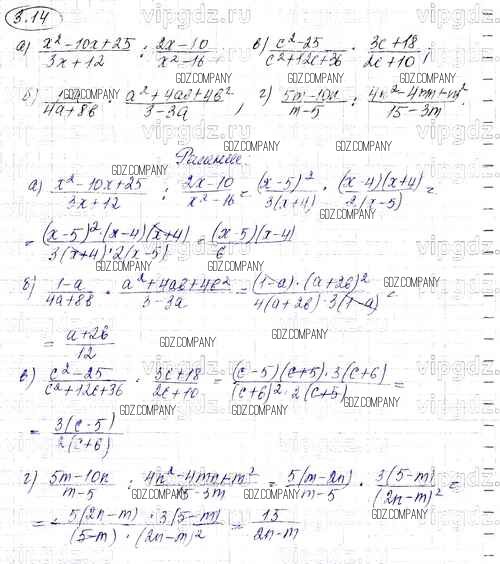 3.14
а) x²-10x+25 / 3x+12 : 2x-10 / x²-16 в) c²-25 / c²+12c+36 · 3c+18 / 2c+10;
б) / 4a+8b · a²+4ab+4b² / 3-3a, г) 5m-10n / m-5 : 4n²-4mn+m² / 15-3m.
Решение
а) x²-10x+25 / 3x+12 : 2x-10 / x²-16 = (x-5)² / 3(x+4) · (x-4)(x+4) / 2(x-5) =
= (x-5)²·(x-4)(x+4) / 3(x+4)·2(x-5) = (x-5)(x-4) / 6
б) 1-a / 4a+8b · a²+4ab+4b² / 3-3a = (1-a)·(a+2b)² / 4(a+2b)·3(1-a) =
= a+2b / 12
в) c²-25 / c²+12c+36 · 3c+18 / 2c+10 = (c-5)(c+5)·3(c+6) / (c+6)²·2(c+5) =
= 3(c-5) / 2(c+6)
г) 5m-10n / m-5 : 4n²-4mn+m² / 15-3m = 5(m-2n) / m-5 · 3(5-m) / (2n-m)² =
= 5(2n-m)·3(5-m) / (5-m)·(2n-m)² = 15 / 2n-m
vipgdz.ru
GDZ.COMPANY